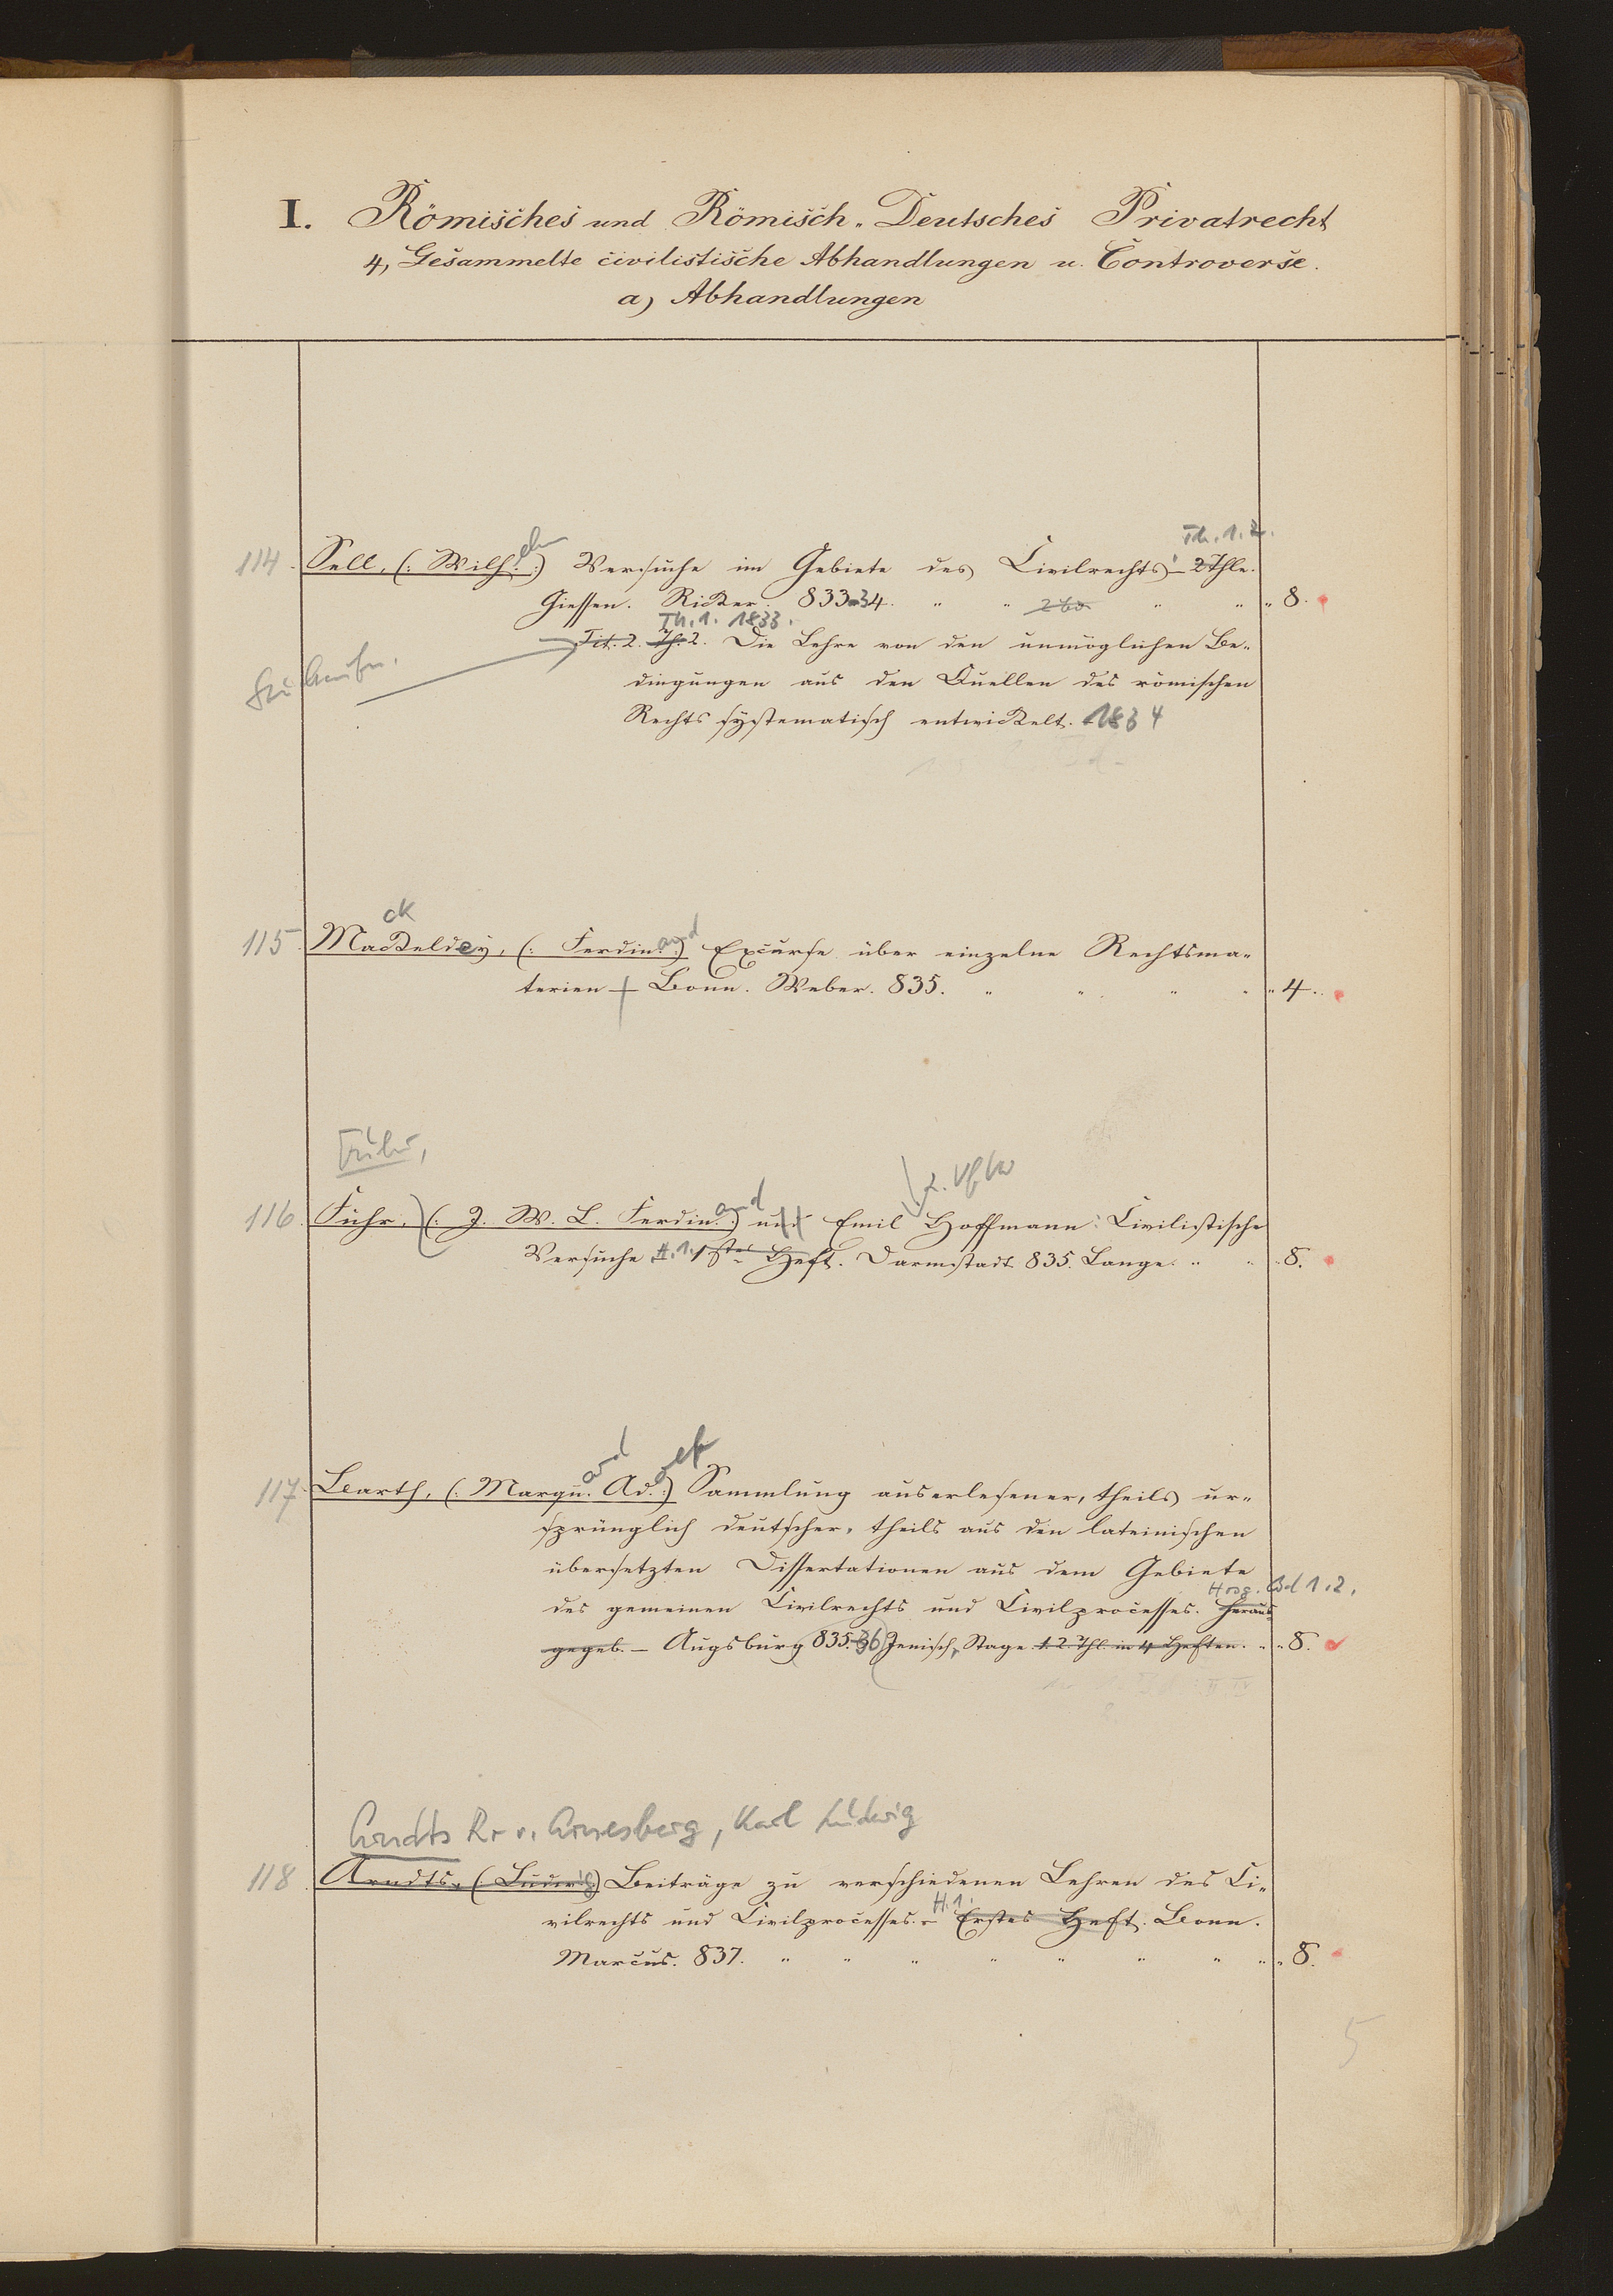 I. Römisches und Römisch-Deutsches Privatrecht
4, Gesammelte civilistische Abhandlungen u. Controverse.
a) Abhandlungen
Th. 1. 2.
114. Sell, (: Wilh. elm :) Versuche im Gebiete des Civilrechts - 2 Thle.
Giessen. Ricker. 833-34. " " 2 bd. " " " 8.
Th. 1. 1833.
Tit. 2. Th. 2. Die Lehre von den unmöglichen Be-
dingungen aus den Quellen des römischen
Rechts systematisch entwickelt. 1834
ck
115 Mackeldey, (: Ferdin. and :) Excurse über einzelne Rechtsma-
terien - Bonn. Weber. 835. " " " " " 4.
Fuhr,
116. Fuhr, (: J. W. L. Ferdin. and :) und Emil Hoffmann: Civilistische
Versuche H. 1. 1stes Heft. Darmstadt 835. Lange. " " " 8.
117. Barth, (: Marqu. ard Ad. olf :) Sammlung auserlesener, theils ur-
sprünglich deutscher, theils aus den lateinischen
übersetzten Dissertationen aus dem Gebiete
Hrsg. Bd 1.2.
des gemeinen Civilrechts und Civilprocesses. Heraus
gegeb. - Augsburg 835.-36 Jenisch, Stage 1. 2. Thl. in 4 Heften. " " 8.
Arndts R. v. Arnesberg, Karl Ludwig
118 Arndts, (: Ludwig :) Beiträge zu verschiedenen Lehren des Ci-
H. 1.
vilrechts und Civilprocesses. - Erstes Heft. Bonn.
Marcus. 837. " " " " " " " " " 8.
5